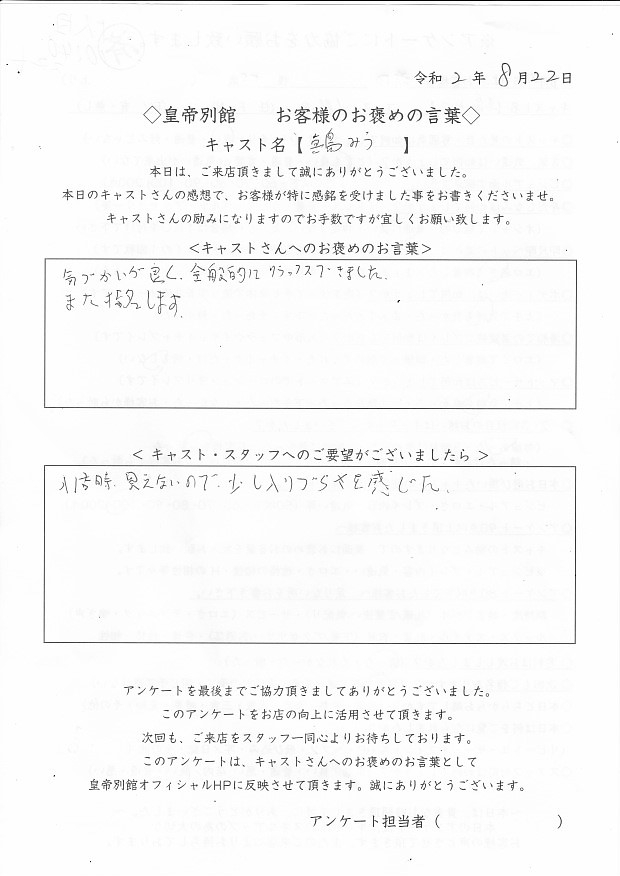 令和 2 年 8 月 22 日
◇皇帝別館 お客様のお褒めの言葉◇
キャスト名【 真島みう 】
本日は、ご来店頂きまして誠にありがとうございました。
本日のキャストさんの感想で、お客様が特に感銘を受けました事をお書きくださいませ。
キャストさんの励みになりますのでお手数ですが宜しくお願い致します。
＜キャストさんへのお褒めのお言葉＞
気づかいが良く、全般的にリラックスできました。
また指名します。
＜ キャスト・スタッフへのご要望がございましたら ＞
見えないので、少し入りづらさを感じた。
アンケートを最後までご協力頂きましてありがとうございました。
このアンケートをお店の向上に活用させて頂きます。
次回も、ご来店をスタッフ一同心よりお待ちしております。
このアンケートは、キャストさんへのお褒めのお言葉として
皇帝別館オフィシャルHPに反映させて頂きます。誠にありがとうございます。
アンケート担当者（ ）